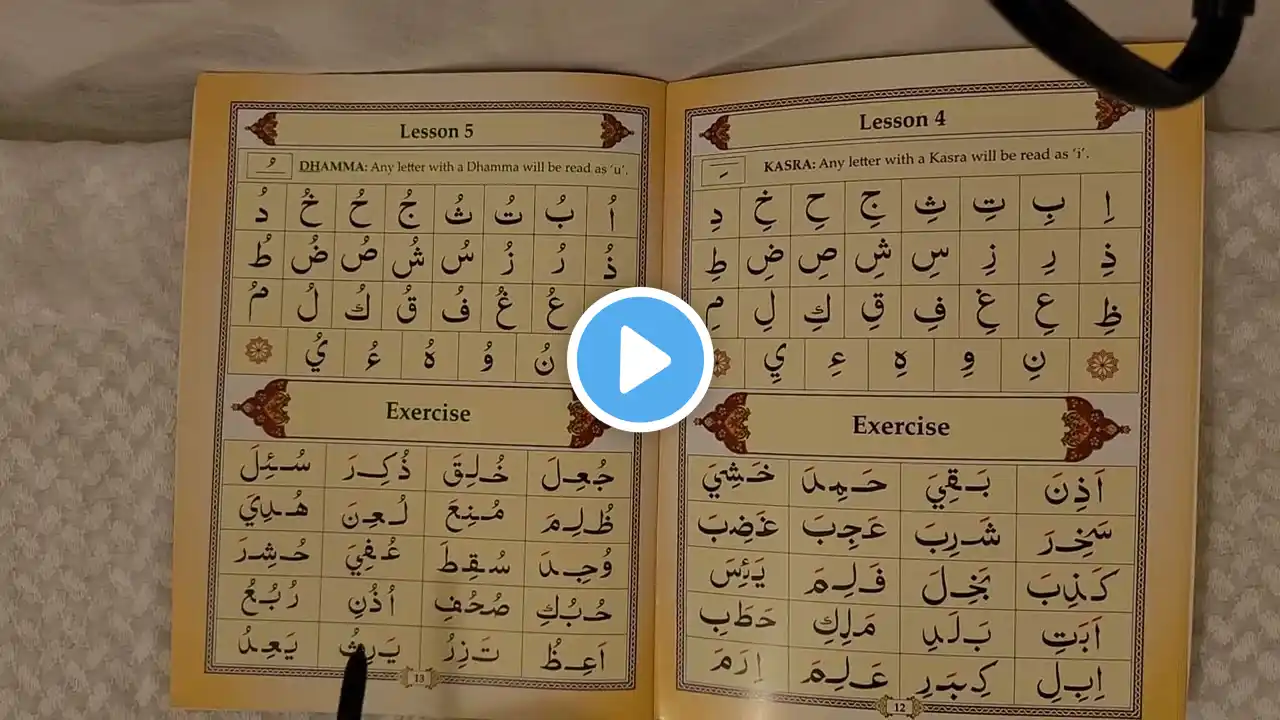 Lesson 4
KASRA: Any letter with a Kasra will be read as 'i'.
اِ بِ تِ ثِ جِ حِ خِ دِ
ذِ رِ زِ سِ شِ صِ ضِ طِ
ظِ عِ غِ فِ قِ كِ لِ مِ
نِ وِ هِ ءِ يِ
Exercise
اَذِنَ بَقِيَ حَمِدَ خَشِيَ
سَخِرَ شَرِبَ عَجِبَ غَضِبَ
كَذِبَ بَخِلَ فَلِمَ يَئِسَ
اَبَتِ بَلَدِ مَلِكِ حَطَبِ
اِبِلِ كِبَرِ عَلِمَ اِرَمَ
12
Lesson 5
DHAMMA: Any letter with a Dhamma will be read as 'u'.
اُ بُ تُ ثُ جُ حُ خُ دُ
ذُ رُ زُ سُ شُ صُ ضُ طُ
عُ غُ فُ قُ كُ لُ مُ
نُ وُ هُ ءُ يُ
Exercise
جُعِلَ خُلِقَ ذُكِرَ سُئِلَ
ظُلِمَ مُنِعَ لُعِنَ هُدِيَ
وُجِدَ سُقِطَ عُفِيَ حُشِرَ
حُبُكِ صُحُفِ اُذُنِ رُبُعُ
اَعِظُ تَزِرُ يَرِثُ يَعِدُ
13